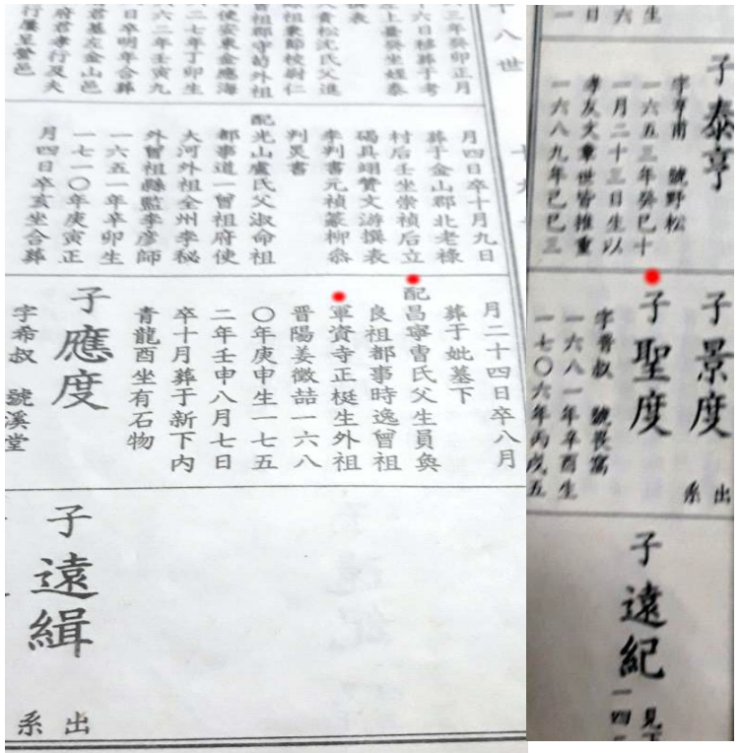 生
六
日
一
子泰亨
字亨甫 號野松
一六五三年癸巳十
一月二十三日生以
孝友文章世皆推重
一六八九年己巳三
子景度 出系
子聖度
字晋叔 號畏窩
一六八一年辛酉生
一七〇六年丙戌五
子遠紀
十八世
三年癸卯正月
十六日移葬于考
撰表
松沈氏父進
祖秉節校尉仁
曾祖郡守荀外祖
使安東金應海
二七年丁卯生
六二年壬寅九
日卒明年合葬
君墓左金山邑
府君孝行及夫
行屢呈營邑
月四日卒十月九日
葬于金山郡北老祿
村后壬坐崇禎后立
碣具翊贊文游撰表
李判書元禎篆柳翕
判炅書
配光山盧氏父淑命祖
都事道一曾祖府使
大河外祖全州李秘
外曾祖縣監李彦師
一六五一年辛卯生
一七一〇年庚寅正
月四日卒亥坐合葬
月二十四日卒八月
葬于妣墓下
配昌寧曺氏父生員奐
良祖都事時逸曾祖
軍資寺正梃生外祖
晋陽姜徵喆一六八
〇年庚申生一七五
二年壬申八月七日
卒十月葬于新下內
青龍酉坐有石物
子應度
字希叔 號溪堂
子遠緝 出系